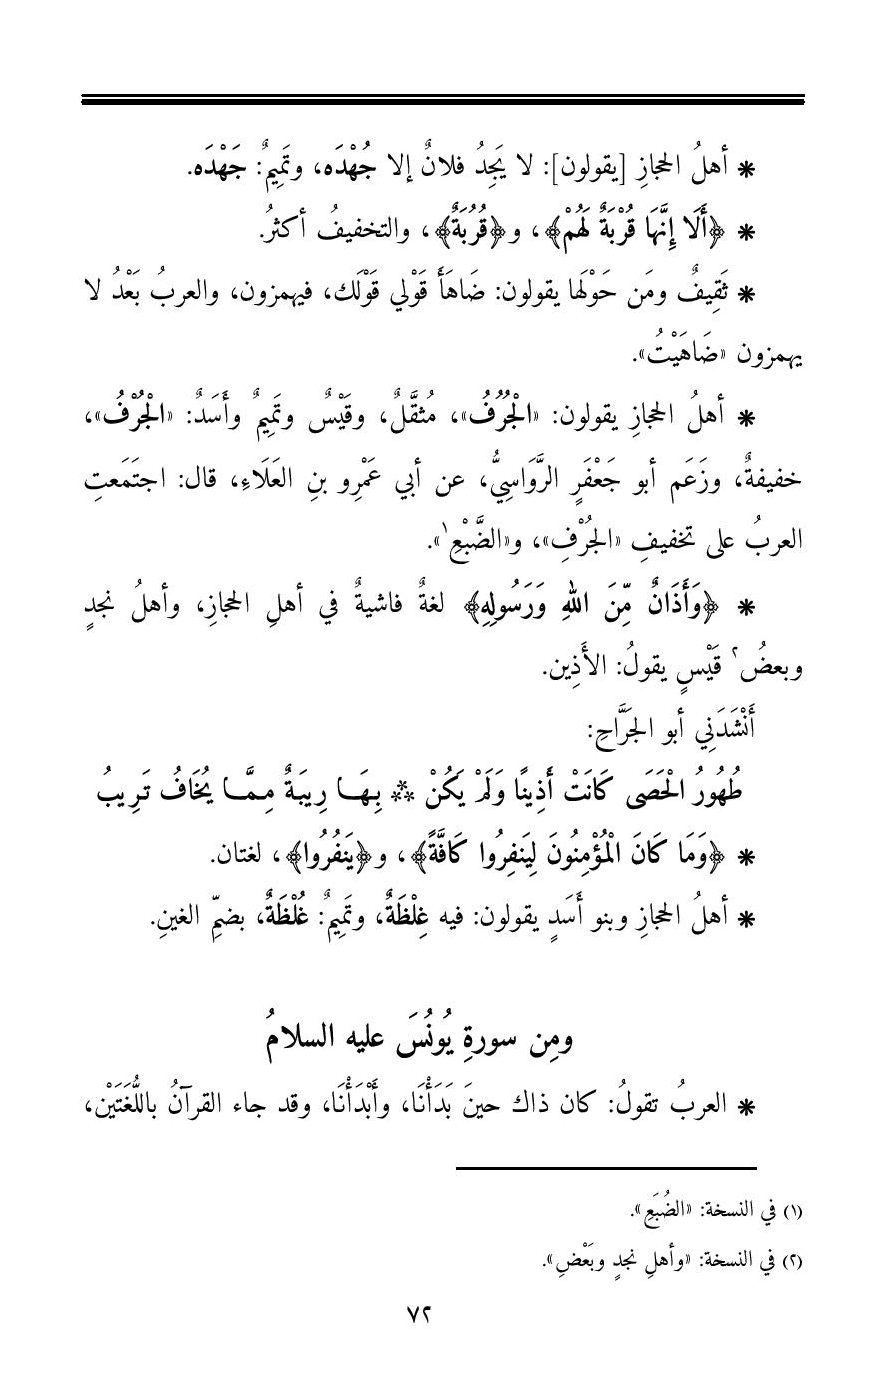 * أهلُ الحجازِ [يقولون]: لا يَجِدُ فلانٌ إلا جُهْدَه، وتَمِيمٌ: جَهْدَه.
* ﴿أَلَا إِنَّهَا قُرْبَةٌ لَهُمْ﴾، و﴿قُرُبَةٌ﴾، والتخفيفُ أكثرُ.
* ثَقِيفٌ ومَن حَوْلَها يقولون: ضَاهَأَ قَوْلي قَوْلَك، فيهمزون، والعربُ بَعْدُ لا
يهمزون «ضَاهَيْتُ».
* أهلُ الحجازِ يقولون: «الْجُرُفُ»، مُثقَّلٌ، وقَيْسٌ وتَمِيمٌ وأَسَدٌ: «الْجُرْفُ»،
خفيفةٌ، وزَعَم أبو جَعْفَرٍ الرَّوَاسِيُّ، عن أبي عَمْرِو بنِ العَلَاءِ، قال: اجتَمَعتِ
العربُ على تخفيفِ «الجُرْفِ»، و«الضَّبْعِ١».
* ﴿وَأَذَانٌ مِّنَ اللهِ وَرَسُولِهِ﴾ لغةٌ فاشيةٌ في أهلِ الحجازِ، وأهلُ نجدٍ
وبعضُ٢ قَيْسٍ يقولُ: الأَذِين.
أَنْشَدَنِي أبو الجَرَّاحِ:
طُهُورُ الْحَصَى كَانَتْ أَذِينًا وَلَمْ يَكُنْ ** بِهَا رِيبَةٌ مِمَّا يُخَافُ تَرِيبُ
* ﴿وَمَا كَانَ الْمُؤْمِنُونَ لِيَنفِرُوا كَافَّةً﴾، و﴿يَنفُرُوا﴾، لغتان.
* أهلُ الحجازِ وبنو أَسَدٍ يقولون: فيه غِلْظَةٌ، وتَمِيمٌ: غُلْظَةٌ، بضمِّ الغينِ.
ومِن سورةِ يُونُسَ عليه السلامُ
* العربُ تقولُ: كان ذاك حينَ بَدَأْنَا، وأَبْدَأْنَا، وقد جاء القرآنُ باللُّغَتَيْن،
(١) في النسخة: «الضُبَعِ».
(٢) في النسخة: «وأهلِ نجدٍ وبَعْضِ».
٧٢